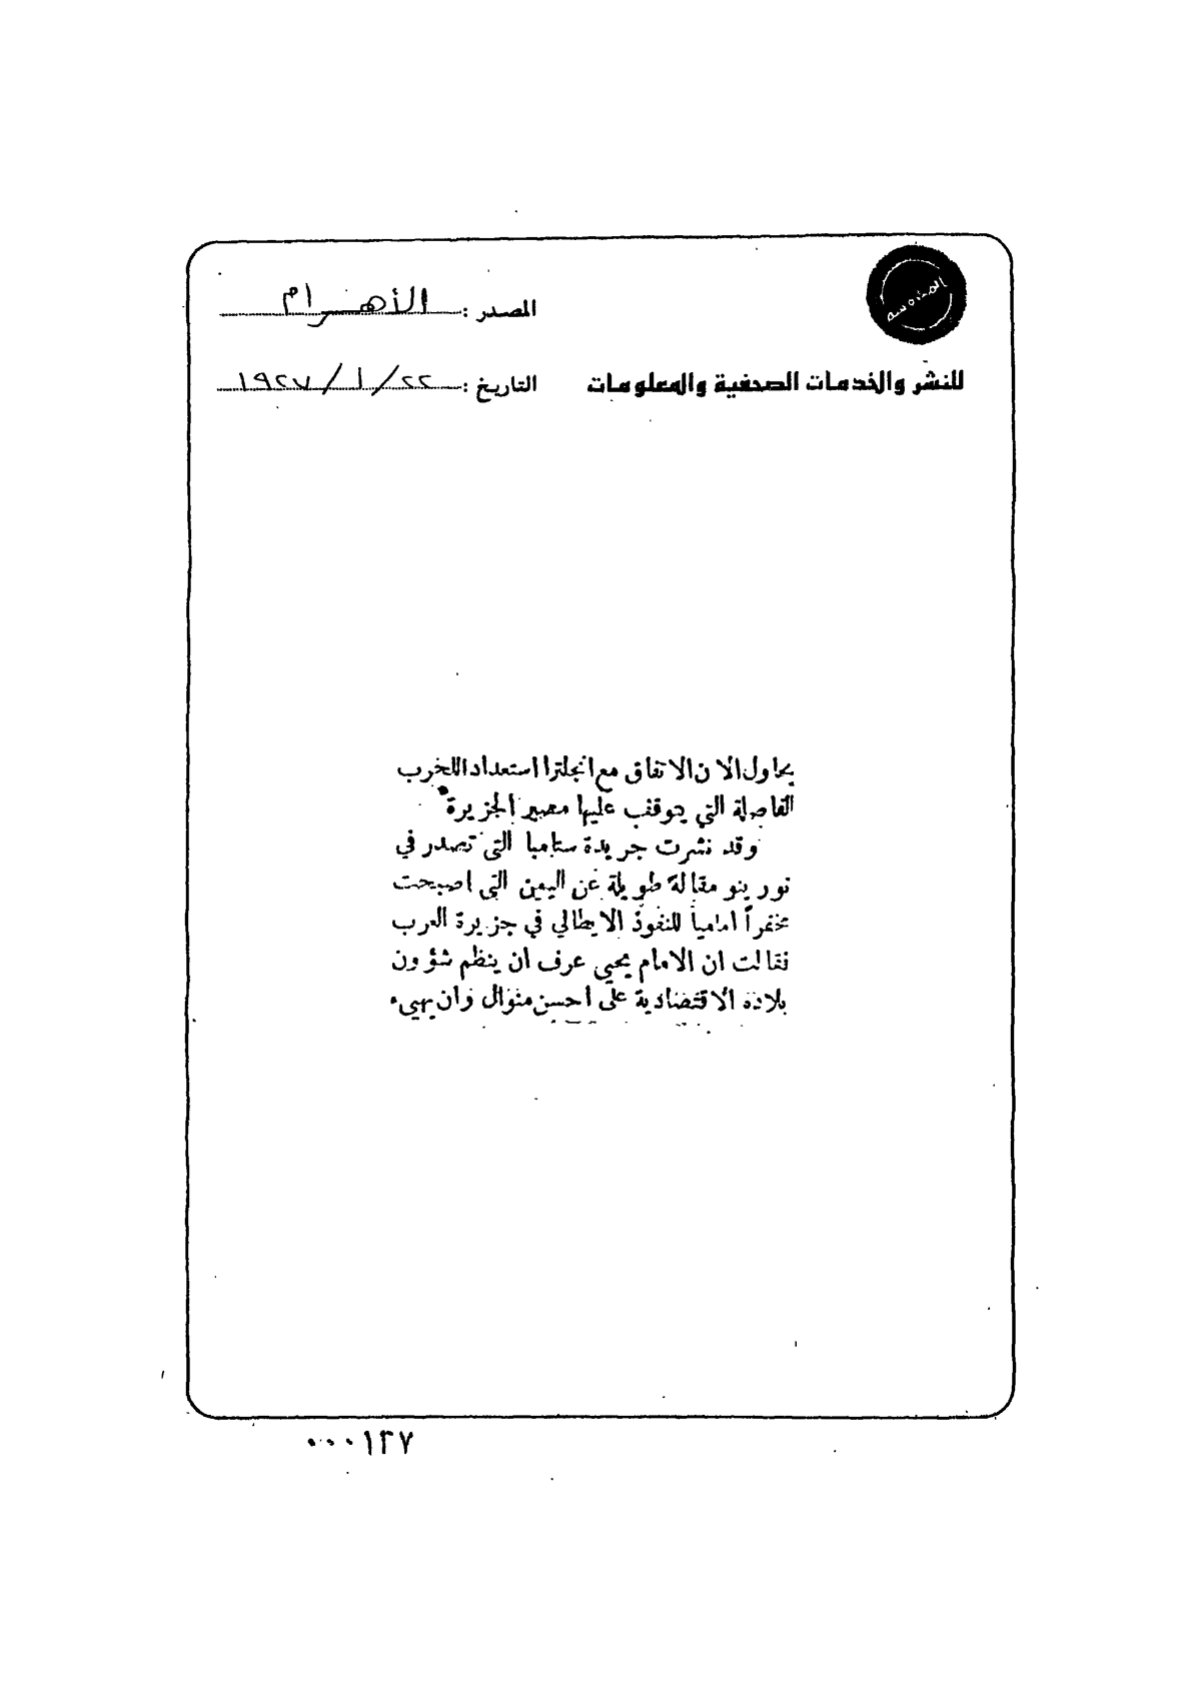 المدوسه
المصدر : الأهـرام
للنشر والخدمات الصحفية والمعلومات
التاريخ : ٢٢/ ١/ ١٩٢٧
يحاول الان الاتفاق مع انجلترا استعدادا للحرب
الفاصلة التي يتوقف عليها مصير الجزيرة
وقد نشرت جريدة ستامبا التي تصدر في
تورينو مقالة طويلة عن اليمن التي اصبحت
مخفراً امامياً للنفوذ الايطالي في جزيرة العرب
فقالت ان الامام يحيي عرف ان ينظم شؤون
بلاده الاقتصادية على احسن منوال وان يهييء
٠٠٠١٣٧